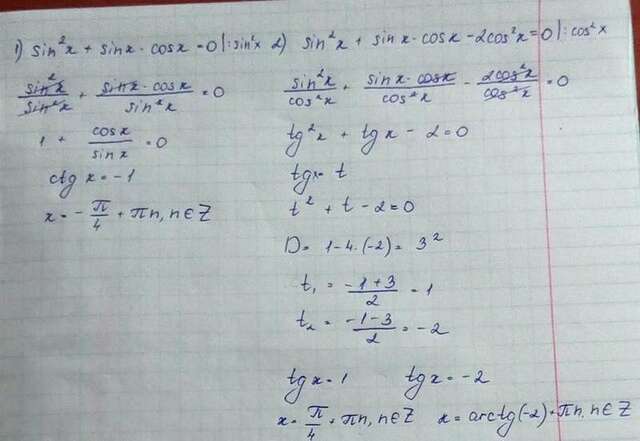 1) sin²x + sinx · cosx = 0 |: sin²x
sin²x/sin²x + sinx · cosx/sin²x = 0
1 + cosx/sinx = 0
ctg x = -1
x = - π/4 + πn, n∈Z
2) sin²x + sinx · cosx - 2cos²x = 0 |: cos²x
sin²x/cos²x + sinx · cosx/cos²x - 2cos²x/cos²x = 0
tg²x + tgx - 2 = 0
tgx = t
t² + t - 2 = 0
D = 1 - 4 · (-2) = 3²
t₁ = (-1 + 3)/2 = 1
t₂ = (-1 - 3)/2 = -2
tg x = 1 tg x = -2
x = π/4 + πn, n∈Z x = arctg(-2) + πn, n∈Z